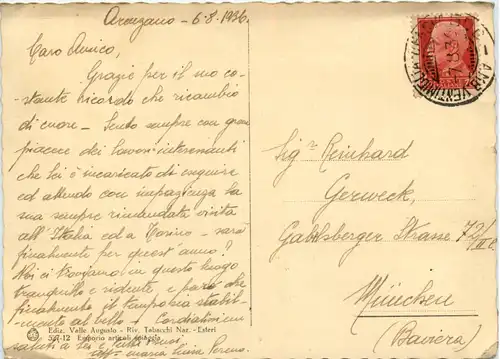 Arenzano - 6.8.1936
Caro Amico,
Grazie per il suo co-
stante ricordo che ricambio
di cuore - Sento sempre con gran
piacere dei lavori interessanti
che Lei è incaricato di eseguire
ed attendo con impazienza la
sua sempre rimandata visita
all'Italia ed a Torino - sarà
finalmente per quest'anno?
Noi ci troviamo in questo luogo
tranquillo e ridente e pare che
finalmente il tempo sia stabil-
mente al bello - Cordialissimi
saluti a Lei e
Maria Luisa
Ediz. Valle Augusto - Riv. Tabacchi Naz. - Esteri
5-7-12 Emporio articoli spiaggia
Sig. Reinhard
Gerweck,
Gabelsberger Strasse 72/
München
(Baviera)